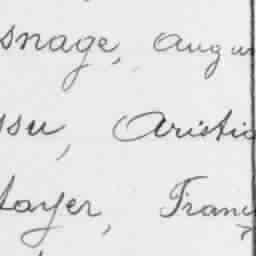 snage, Augus
ssu, Aristid
tayer, Franç